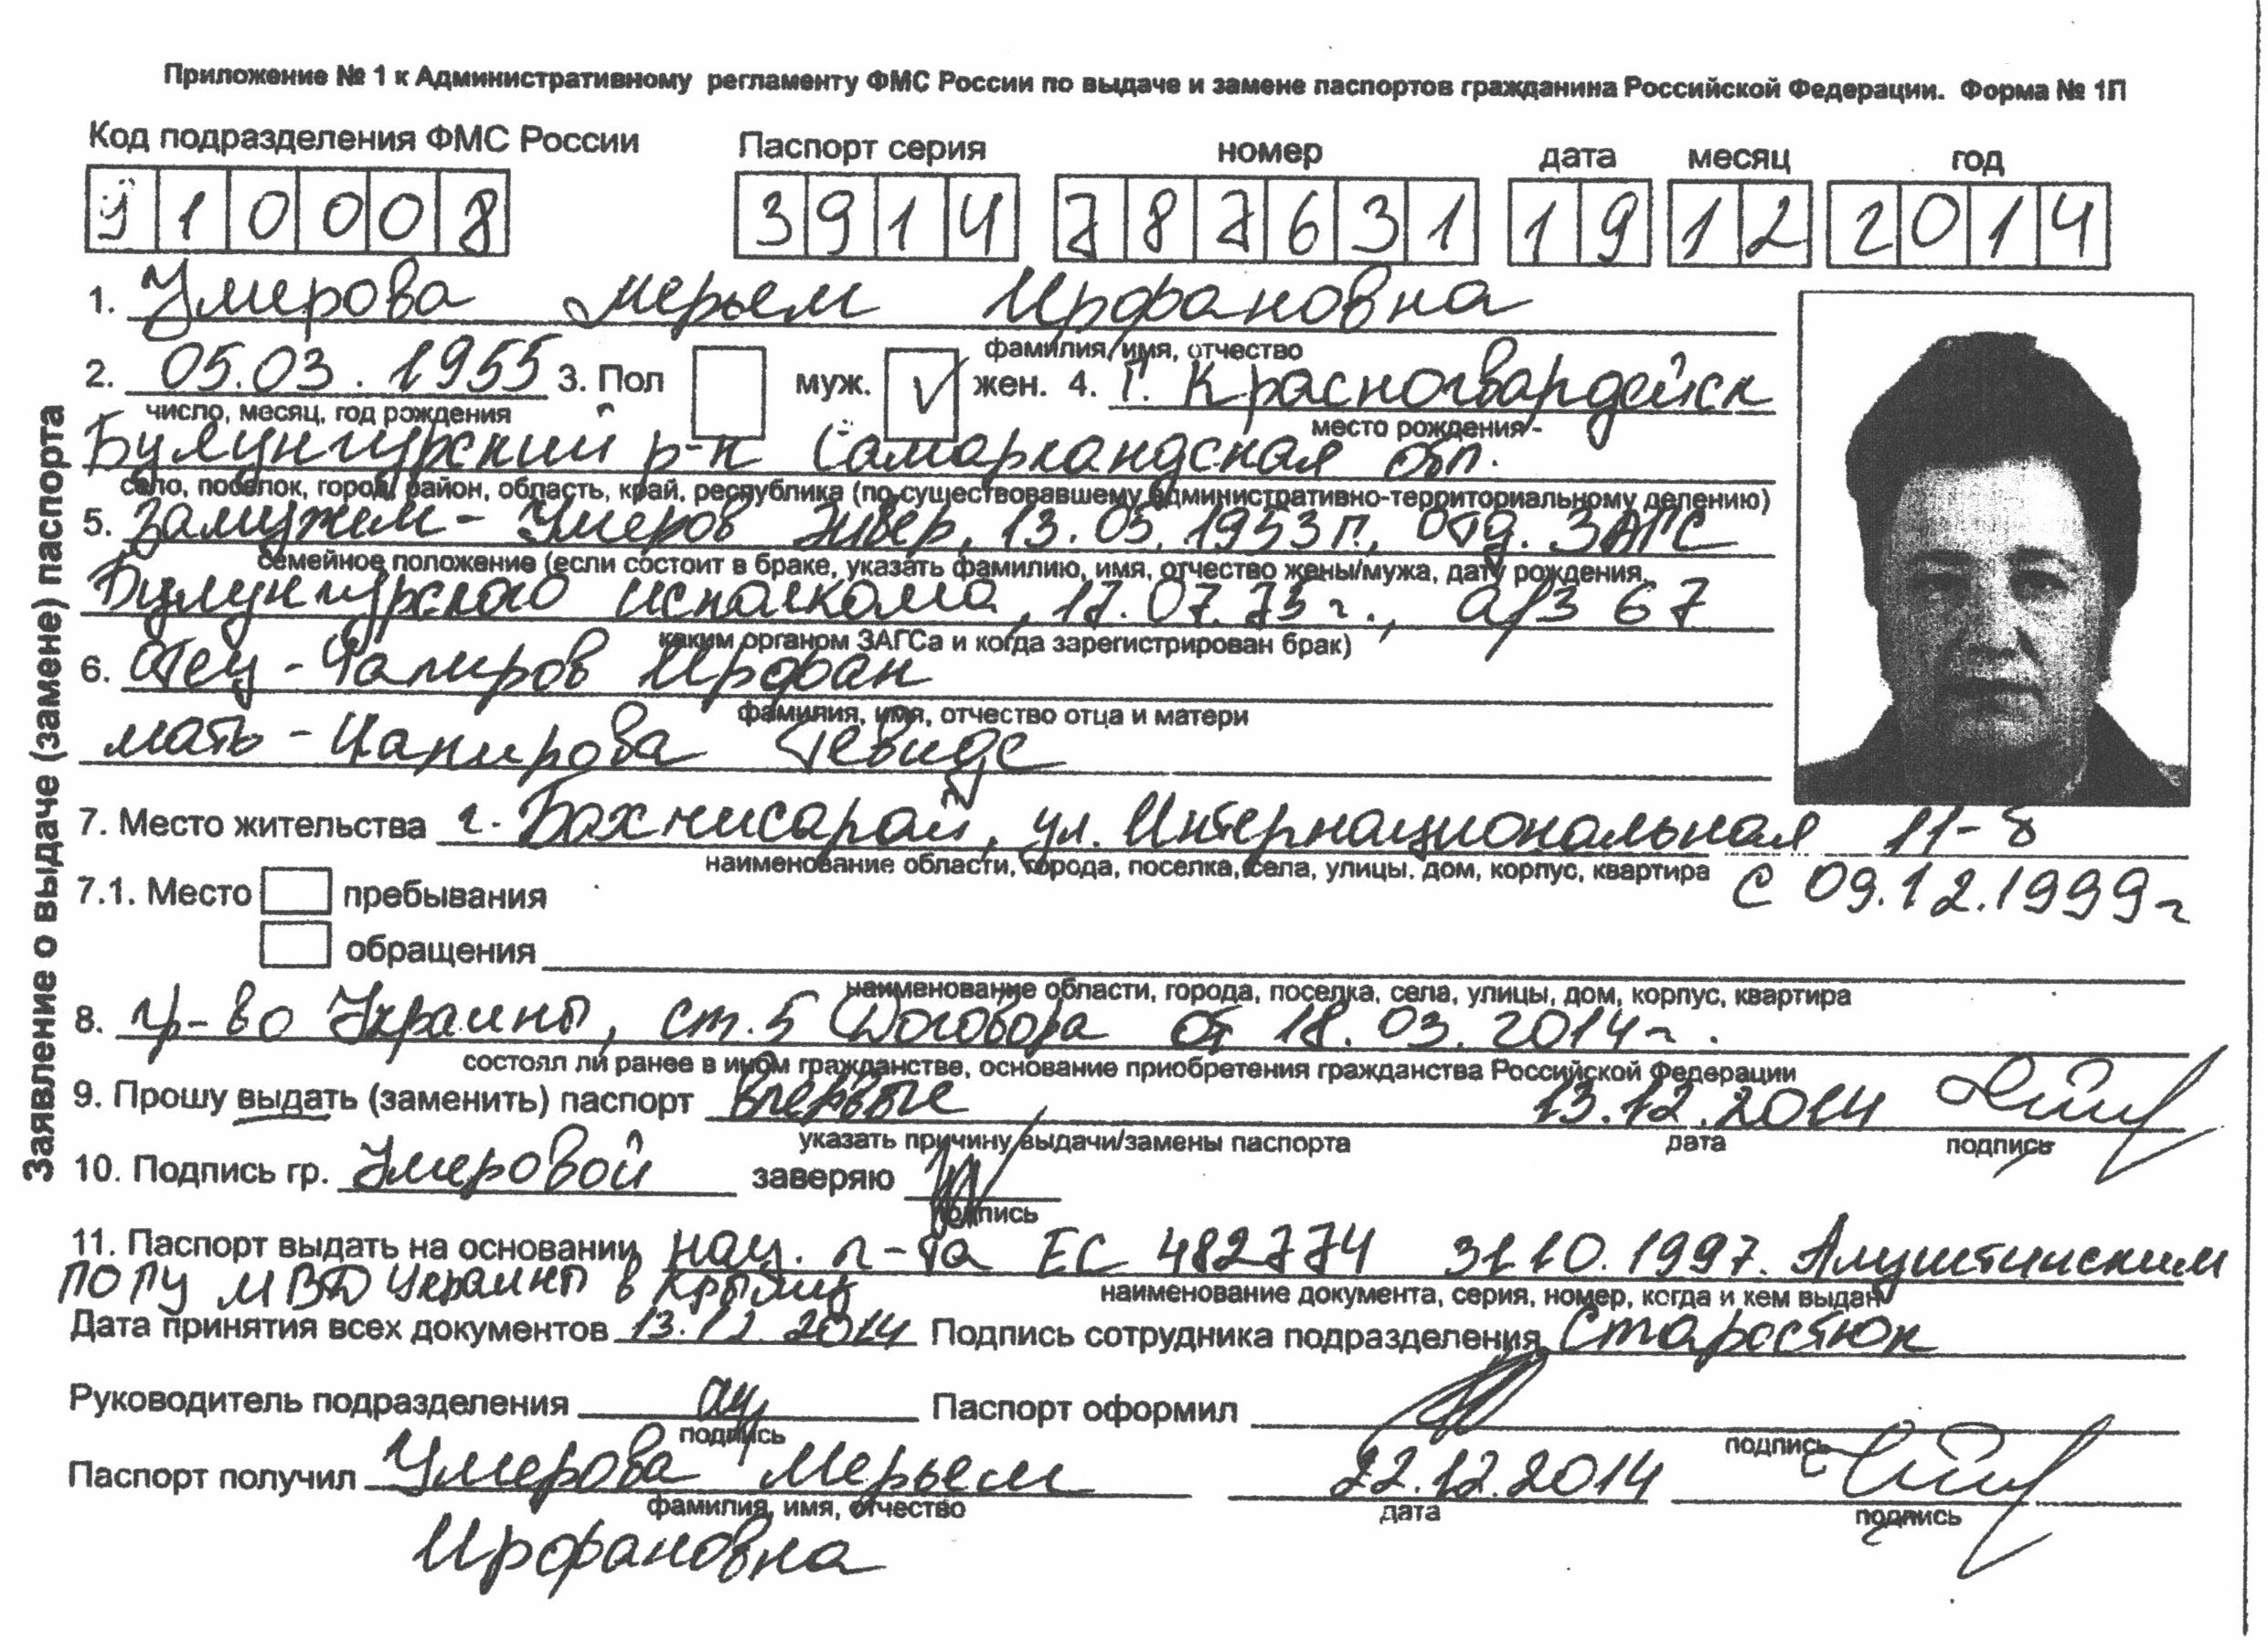 Приложение № 1 к Административному регламенту ФМС России по выдаче и замене паспортов гражданина Российской Федерации. Форма № 1П
Заявление о выдаче (замене) паспорта
Код подразделения ФМС России Паспорт серия номер дата месяц год
910008 3914 787631 19 12 2014
1. Умерова Мерьем Ирфановна
фамилия, имя, отчество
2. 05.03.1955 3. Пол муж. V жен. 4. г. Красногвардейск
число, месяц, год рождения место рождения
Булунгурский р-н Самаркандская обл.
село, поселок, город, район, область, край, республика (по существовавшему административно-территориальному делению)
5. Замужем - Умеров Энвер, 13.05.1953 г., отд. ЗАГС
семейное положение (если состоит в браке, указать фамилию, имя, отчество жены/мужа, дату рождения,
Булунгурского исполкома, 17.07.75 г., а/з 67
каким органом ЗАГСа и когда зарегистрирован брак)
6. Отец - Ирфан
фамилия, имя, отчество отца и матери
мать -
7. Место жительства г. Бахчисарай, ул. Интернациональная 11-б
наименование области, города, поселка, села, улицы, дом, корпус, квартира с 09.12.1999 г
7.1. Место пребывания
обращения
наименование области, города, поселка, села, улицы, дом, корпус, квартира
8. гр-во Украины, ст. 5 Договора от 18.03.2014 г.
состоял ли ранее в ином гражданстве, основание приобретения гражданства Российской Федерации
9. Прошу выдать (заменить) паспорт впервые 13.12.2014
указать причину выдачи/замены паспорта дата подпись
10. Подпись гр. Умеровой заверяю
подпись
11. Паспорт выдать на основании нац. п-та ЕС 482774 31.10.1997. Алуштинским
ПО ГУ МВД Украины в Крыму
наименование документа, серия, номер, когда и кем выдан
Дата принятия всех документов 13.12.2014 Подпись сотрудника подразделения Старостюк
Руководитель подразделения Паспорт оформил
подпись подпись
Паспорт получил Умерова Мерьем 22.12.2014
фамилия, имя, отчество дата подпись
Ирфановна